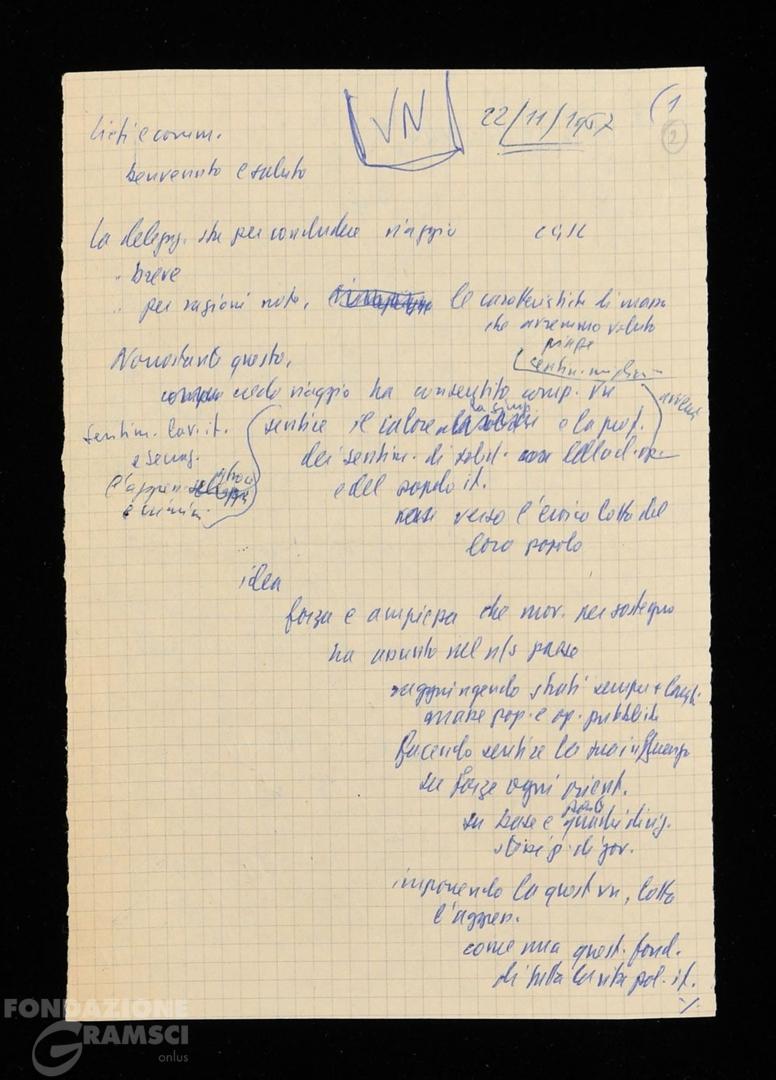 VN
22/11/1967
(1
2
Lieti e comm.
benvenuto e saluto
La delegaz. sta per concludere viaggio
" breve
" per ragioni note, le caratteristiche di massa
che avremmo voluto
Nonostante questo,
credo viaggio ha consentito comp. VN
sentire il calore e la prof.
dei sentim. di solid. della cl. op.
e del popolo it.
verso l'eroica lotta del
loro popolo
sentim. lav. it.
l'aggres.
idea
forza e ampiezza che mov. per sostegno
ha assunto nel n/s paese
raggiungendo strati sempre + larghi
masse pop. e op. pubblica
facendo sentire la sua influenza
su forze ogni orient.
su base e quadri dirig.
stessi p. di gov.
imponendo la quest. VN, lotta
l'aggres.
come una quest. fond.
di tutta la vita pol. it.
%
FONDAZIONE
GRAMSCI
onlus